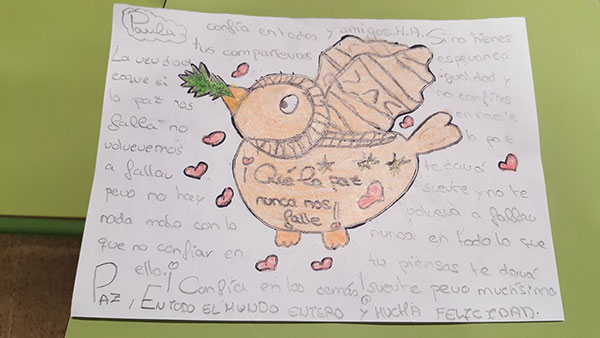 Paula
confía en todos y amigos. H.A. Si no tienes
tus compañeros esperanza
La verdad
es que si
la paz nos
falla no
volveremos
a fallar
pero no hay
nada malo con lo
que no confiar en
ello.
igualdad y
no confías
la paz
te dará
suerte y no te
volverá a fallar
nunca en todo lo que
tu piensas te dará
¡Qué la paz
nunca nos
falle!!
¡Confía en los demás! suerte pero muchísima
PAZ, EN TODO EL MUNDO ENTERO Y MUCHA FELICIDAD.